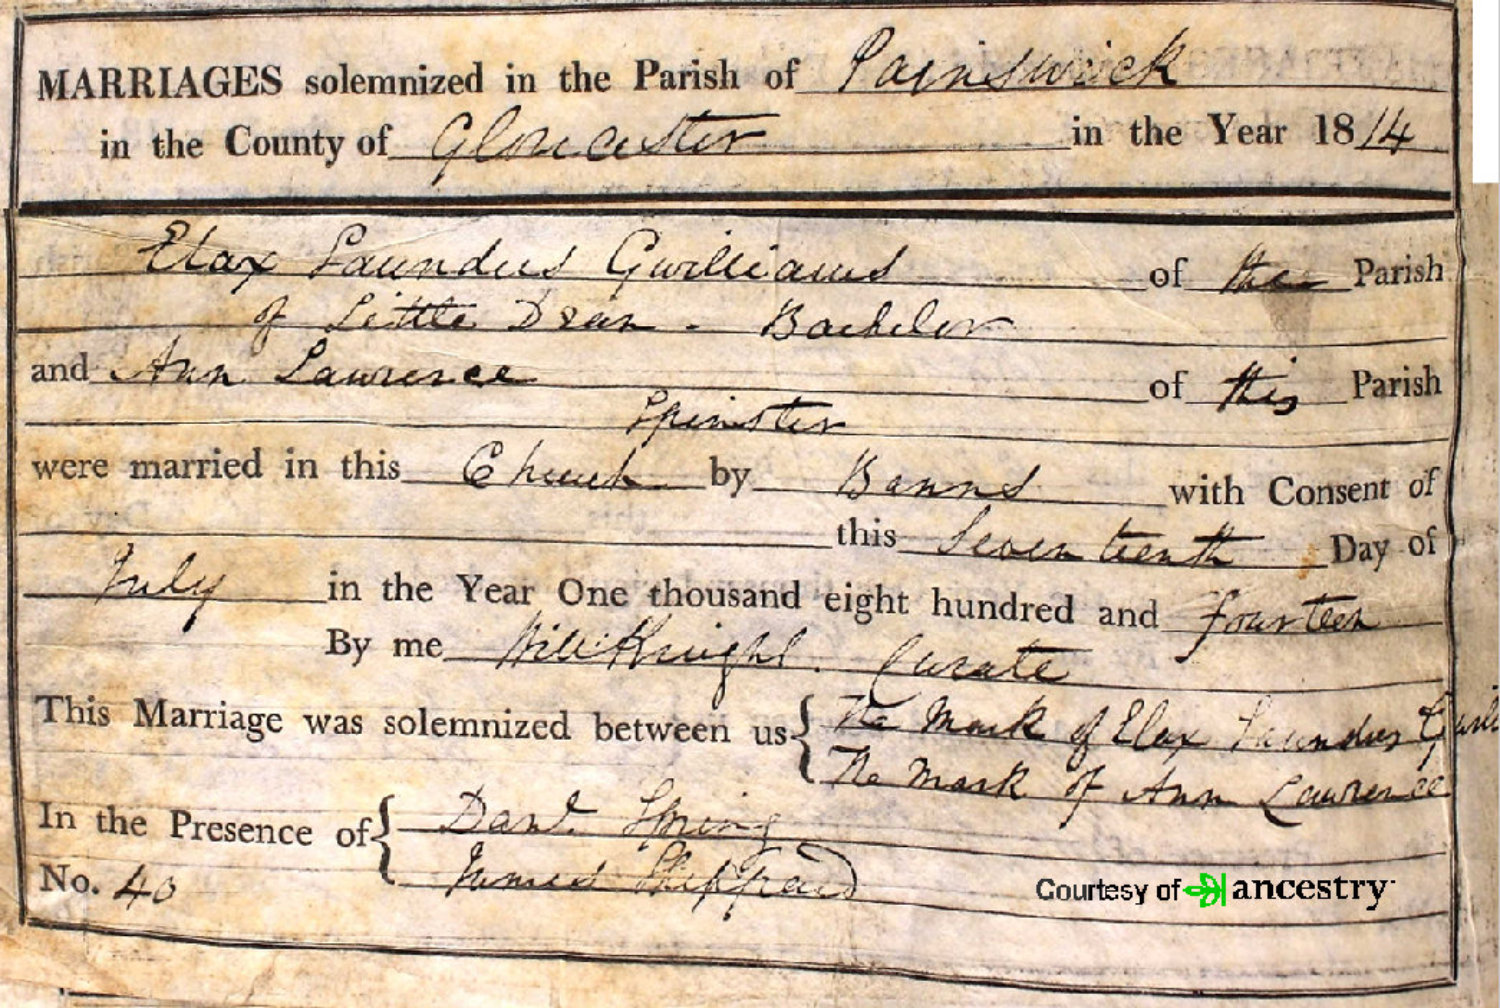 MARRIAGES solemnized in the Parish of Painswick
in the County of Gloucester in the Year 1814
Elax Saunders Gwilliams of the Parish
of Little Dean - Bachelor
and Ann Lawrence of this Parish
Spinster
were married in this Church by Banns with Consent of
this Seventeenth Day of
July in the Year One thousand eight hundred and fourteen
By me Will Knight. Curate
This Marriage was solemnized between us { The Mark of Elax Saunders Gwilli
The Mark of Ann Lawrence
In the Presence of { Danl. Spring
No. 40 James Sheppard
Courtesy of ancestry